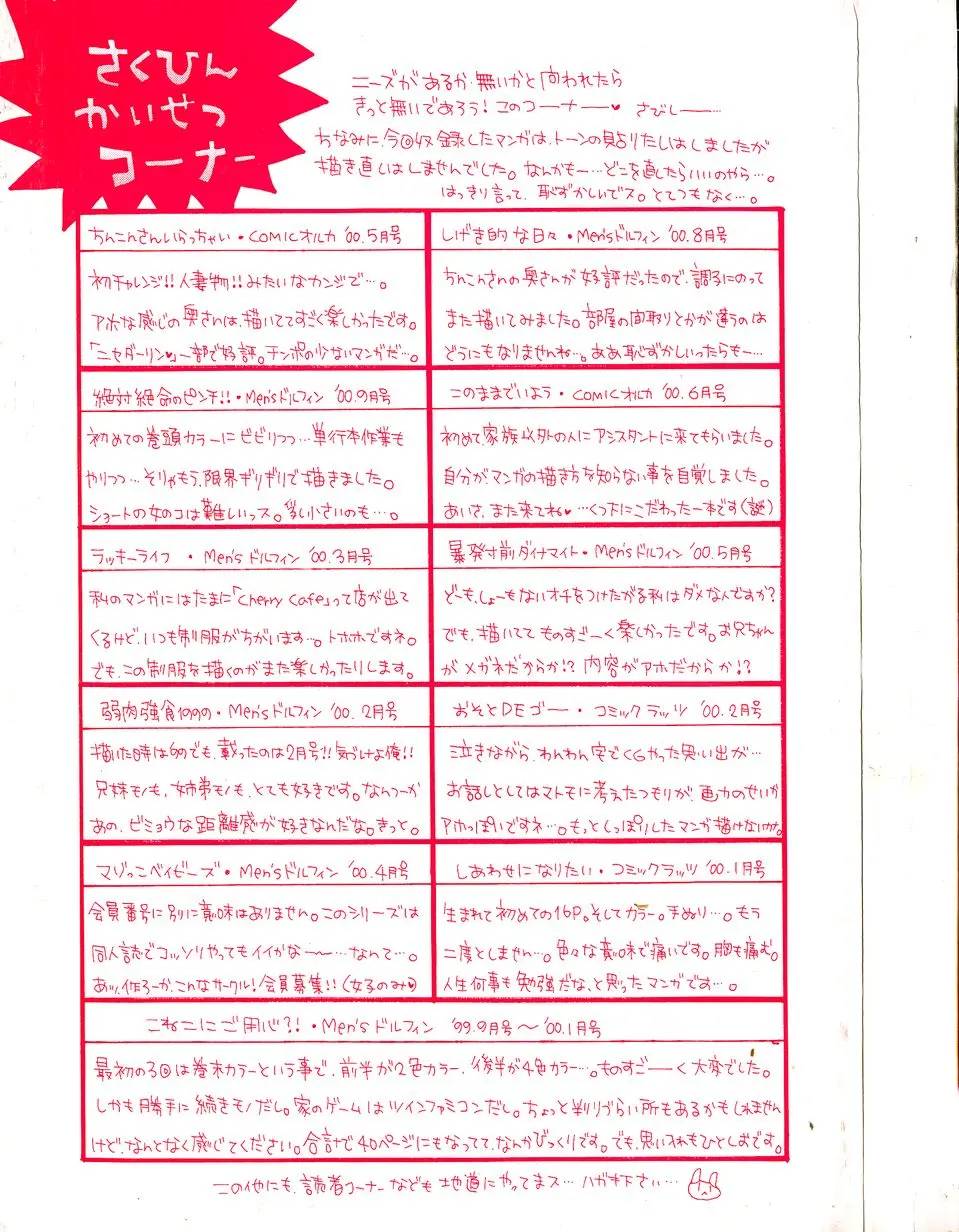 さくひん
かいせつ
コーナー
ニーズがあるか無いかと問われたら
きっと無いであろう!このコーナー──♥ さびしー……
ちなみに、今回収録したマンガは、トーンの貼りたしはしましたが
描き直しはしませんでした。なんかも─…どこを直したらいいのやら…。
はっきり言って、恥ずかしいでス。とてつもなく…。
ちんこんさんいらっちゃい・COMICオルカ '00.5月号
初チャレンジ!!人妻物!!みたいなカンジで…。
アホな感じの奥さんは、描いててすごく楽しかったです。
「ニセダーリン♥」一部で好評。チンポの少ないマンガだ…。
しげき的な日々・Men'sドルフィン '00.8月号
ちんこんさんの奥さんが好評だったので、調子にのって
また描いてみました。部屋の間取りとかが違うのは
どうにもなりませんね…。ああ恥ずかしいったらも─…
絶対絶命のピンチ!!・Men'sドルフィン '00.9月号
初めての巻頭カラーにビビりつつ…単行本作業も
やりつつ…そりゃもう、限界ギリギリで描きました。
ショートの女のコは難しいっス。乳小さいのも…。
このままでいよう・COMICオルカ '00.6月号
初めて家族以外の人にアシスタントに来てもらいました。
自分がマンガの描き方を知らない事を自覚しました。
あいさ、また来てね♥ …くつ下にこだわった一本です(謎)
ラッキーライフ ・Men'sドルフィン '00.3月号
私のマンガにはたまに「Cherry Cafe」って店が出て
くるけど、いつも制服がちがいます…。トホホですネ。
でも、この制服を描くのがまた楽しかったりします。
暴発寸前ダイナマイト・Men'sドルフィン '00.5月号
ど─も、しょーもないオチをつけたがる私はダメなんですか?
でも、描いてて ものすご─く楽しかったです。お兄ちゃん
がメガネだからか!?内容がアホだからか!?
弱肉強食1999・Men'sドルフィン '00.2月号
描いた時は99でも、載ったのは2月号!!気づけよ俺!!
兄妹モノも、姉弟モノも、とても好きです。なんつーか
あの、ビミョウな距離感が好きなんだな。きっと。
おそとDEゴー・コミックラッツ '00.2月号
泣きながら、わんわん宅でCGやった思い出が…
お話しとしてはマトモに考えたつもりが、画力のせいか
アホっぽいですネ…。もっとしっぽりしたマンガ描けないかナ。
マゾっこベイビーズ・Men'sドルフィン '00.4月号
会員番号に別に意味はありません。このシリーズは
同人誌でコッソリやってもイイかな─〜…なんて…。
あッ、作ろーか、こんなサークル!会員募集!!(女子のみ♥)
しあわせになりたい・コミックラッツ '00.1月号
生まれて初めての16P。そしてカラー。手ぬり…。もう
二度としません…。色々な意味で痛いです。胸も痛む。
人生何事も勉強だな、と思ったマンガです…。
こねこにご用心?!・Men'sドルフィン '99.9月号〜'00.1月号
最初の3回は巻末カラーという事で、前半が2色カラー、後半が4色カラー…。ものすご──く大変でした。
しかも勝手に続きモノだし。家のゲームはツインファミコンだし。ちょっと判りづらい所もあるかもしれません
けど、なんとなく感じてください。合計で40ページにもなってて、なんかびっくりです。でも、思い入れもひとしおです。
この他にも、読者コーナーなども地道にやってまス…ハガキ下さい…